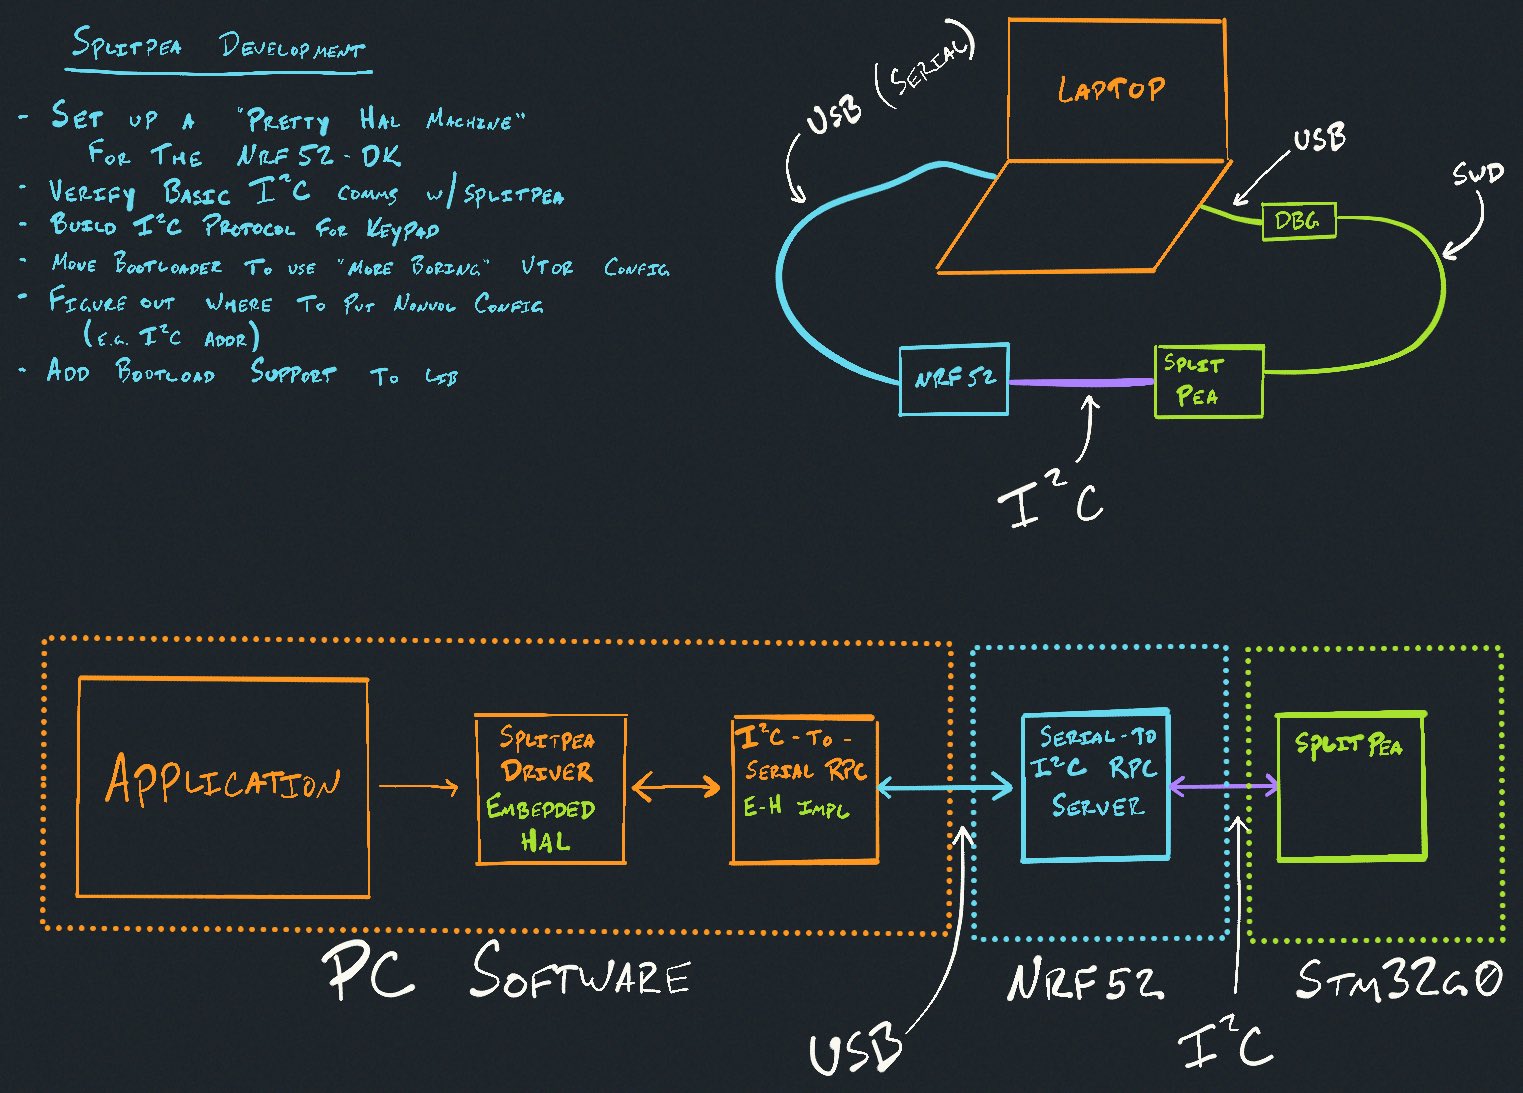 SPLITPEA DEVELOPMENT
- SET UP A "PRETTY HAL MACHINE"
FOR THE NRF52-DK
- VERIFY BASIC I²C COMMS W/SPLITPEA
- BUILD I²C PROTOCOL FOR KEYPAD
- MOVE BOOTLOADER TO USE "MORE BORING" VTOR CONFIG
- FIGURE OUT WHERE TO PUT NONVOL CONFIG
(E.G. I²C ADDR)
- ADD BOOTLOAD SUPPORT TO LIB
USB (SERIAL)
LAPTOP
USB
DBG
SWD
NRF52
SPLIT
PEA
I²C
APPLICATION
SPLITPEA
DRIVER
EMBEDDED
HAL
I²C-TO-
SERIAL RPC
E-H IMPL
SERIAL-TO
I²C RPC
SERVER
SPLITPEA
PC SOFTWARE
USB
NRF52
I²C
STM32G0